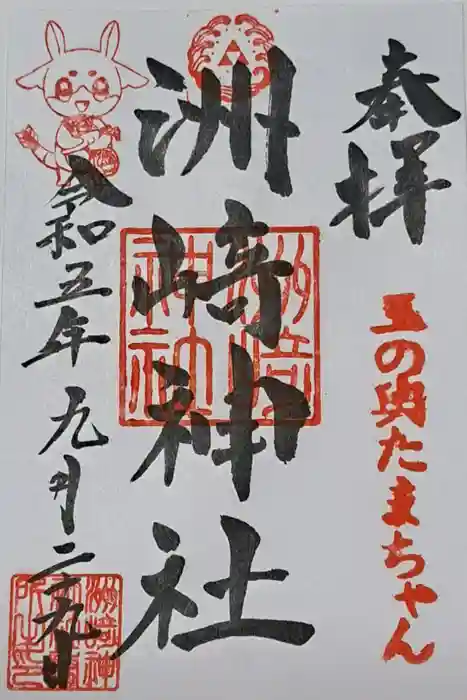 奉拝
玉の輿たまちゃん
洲崎神社
令和五年九月二十九日
洲崎神社